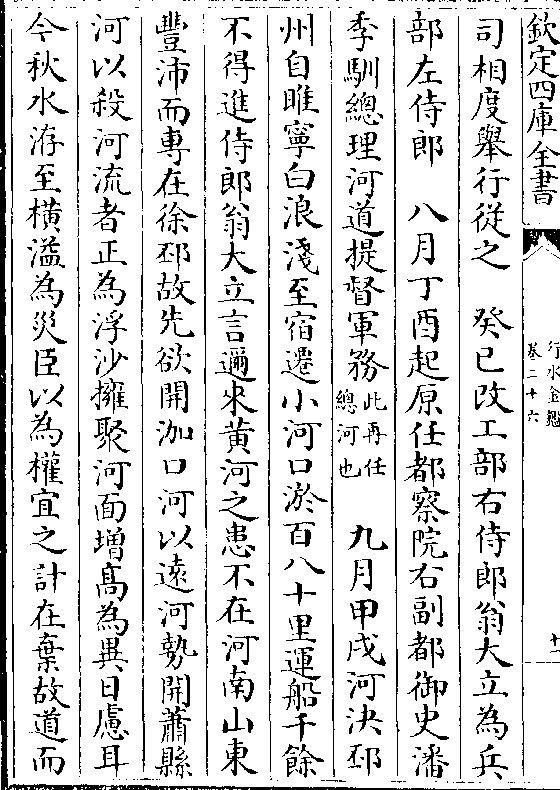 欽定四庫全書
行水金鑑
卷二十六
十
司相度舉行從之　癸巳改工部右侍郎翁大立為兵
部左侍郎　八月丁酉起原任都察院右副都御史潘
季馴總理河道提督軍務此再任總河也　九月甲戌河決邳
州自睢寧白浪淺至宿遷小河口淤百八十里運船千餘
不得進侍郎翁大立言邇來黃河之患不在河南山東
豐沛而專在徐邳故先欲開泇口河以遠河勢開蕭縣
河以殺河流者正為浮沙擁聚河面增髙為異日慮耳
今秋水洊至橫溢為災臣以為權宜之計在棄故道而